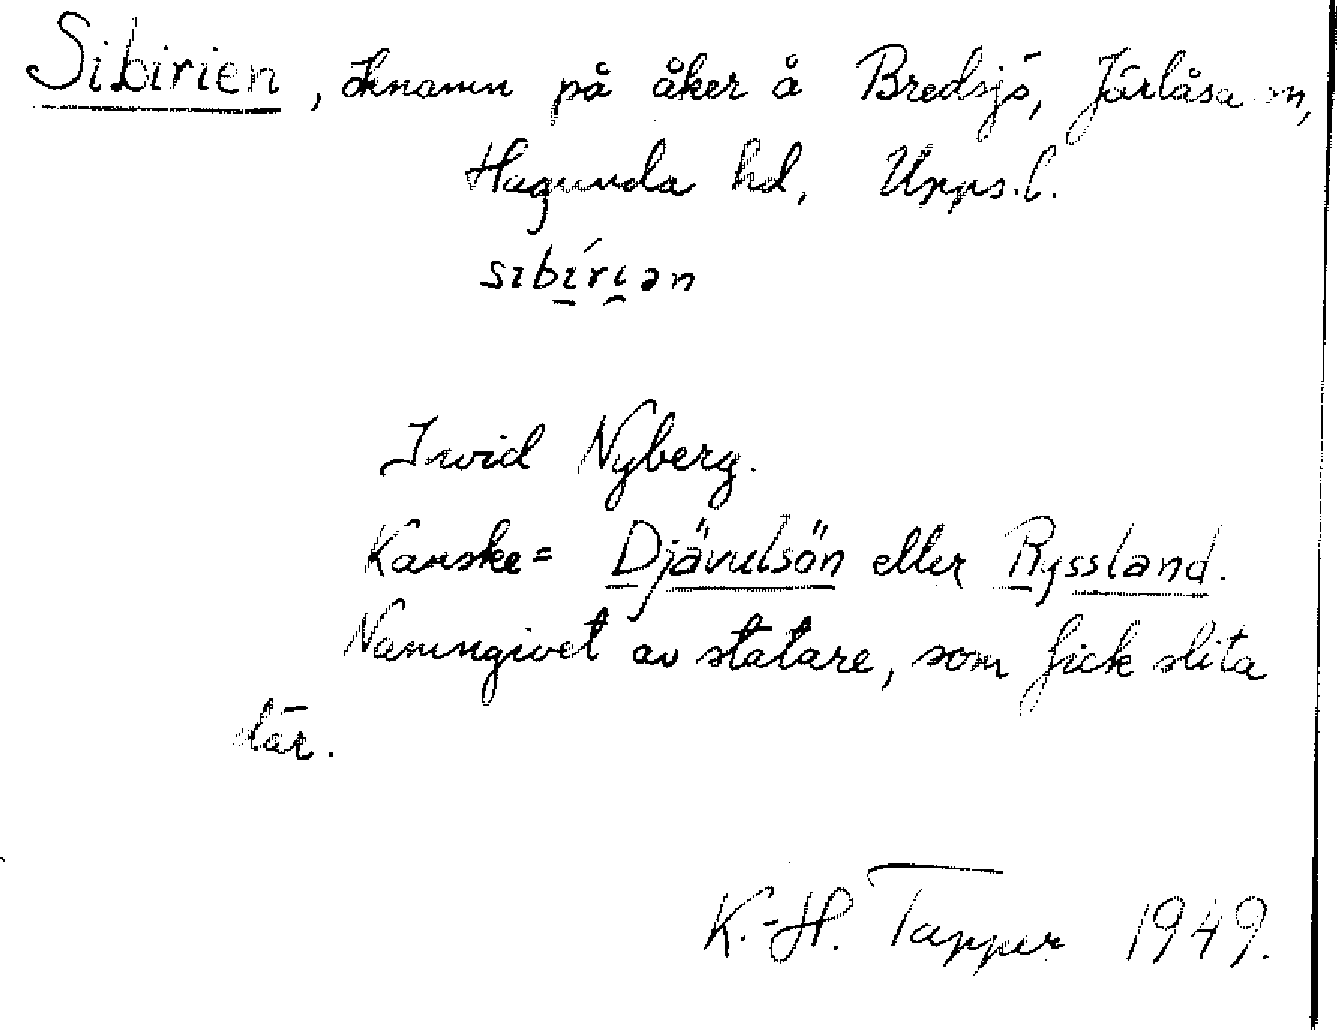 Sibirien, öknamn på åker å Bredsjö, Järlåsa sn,
Hagunda hd, Upps. l.
sibíriən
Ivid Nyberg.
Kanske = Djävulsön eller Ryssland.
Namngivet av statare, som fick slita
där.
K.-H. Tapper 1949.